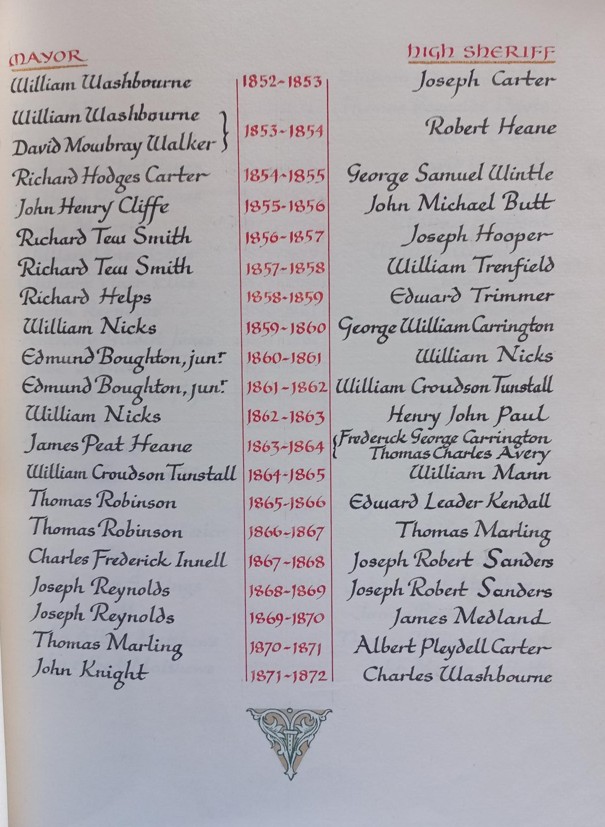 MAYOR HIGH SHERIFF
William Washbourne 1852-1853 Joseph Carter
William Washbourne
David Mowbray Walker 1853-1854 Robert Heane
Richard Hodges Carter 1854-1855 George Samuel Wintle
John Henry Cliffe 1855-1856 John Michael Butt
Richard Tew Smith 1856-1857 Joseph Hooper
Richard Tew Smith 1857-1858 William Trenfield
Richard Helps 1858-1859 Edward Trimmer
William Nicks 1859-1860 George William Carrington
Edmund Boughton, junr. 1860-1861 William Nicks
Edmund Boughton, junr. 1861-1862 William Croudson Tunstall
William Nicks 1862-1863 Henry John Paul
James Peat Heane 1863-1864 Frederick George Carrington
Thomas Charles Avery
William Croudson Tunstall 1864-1865 William Mann
Thomas Robinson 1865-1866 Edward Leader Kendall
Thomas Robinson 1866-1867 Thomas Marling
Charles Frederick Innell 1867-1868 Joseph Robert Sanders
Joseph Reynolds 1868-1869 Joseph Robert Sanders
Joseph Reynolds 1869-1870 James Medland
Thomas Marling 1870-1871 Albert Pleydell Carter
John Knight 1871-1872 Charles Washbourne